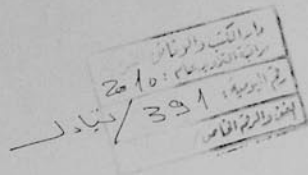 دار الكتب والوثائق
عام: 2010
رقم اليومية: 391/تبادل
والرقم الخاص